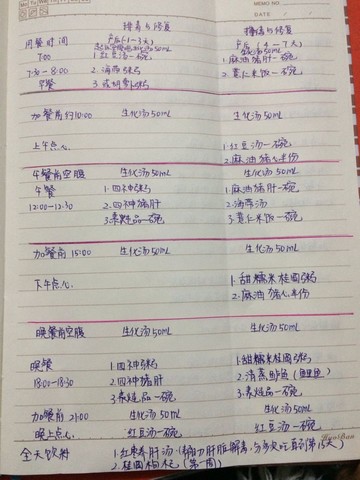 MEMO NO.
DATE / /
排毒与修复
用餐时间 产后(1-3天) 产后(4-7天)
7:00 1.红豆汤一碗 1.麻油猪肝一碗
7:30-8:00 2.海薄粥 2.薏仁米饭一碗
早餐
加餐前10:00 生化汤50mL 生化汤50mL
上午点心 1.红豆汤一碗
2.麻油猪心半份
午餐前空腹 生化汤50mL 生化汤50mL
午餐 1.四神粥 1.麻油猪肝一碗
12:00-12:30 2.四神猪肝 2.海薄汤
3.素炷品一碗 3.薏仁米饭一碗
加餐前15:00 生化汤50mL 生化汤50mL
下午点心 1.甜糯米桂圆粥
2.麻油猪心半份
晚餐前空腹 生化汤50mL 生化汤50mL
晚餐 1.四神粥 1.甜糯米桂圆粥
18:00-18:30 2.四神猪肝 2.清蒸鲈鱼(鲤鱼)
3.素炷品一碗 3.素炷品一碗
加餐前21:00 生化汤50mL 生化汤50mL
晚上点心 红豆汤一碗 红豆汤一碗
全天饮料 1.红枣肝汤(辅助肝脏解毒,
2.桂圆枸杞(第一周)